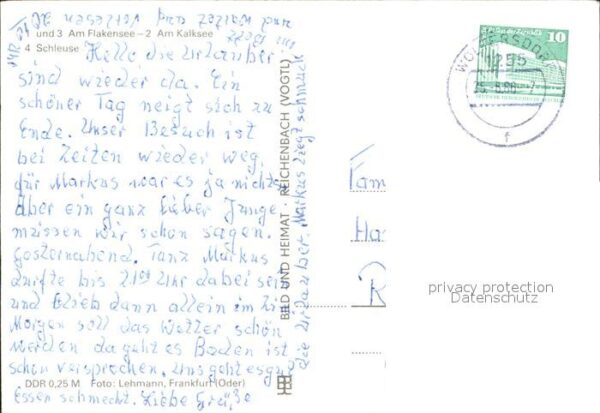 und 3 Am Flakensee – 2 Am Kalksee
4 Schleuse
Hallo die Urlauber
sind wieder da. Ein
schöner Tag neigt sich zu
Ende. Unser Besuch ist
bei Zeiten wieder weg,
für Markus war es ja nichts
Aber ein ganz lieber Junge
müssen wir schon sagen.
gesternabend. Tanz Markus
durfte bis 21 00 Uhr dabei sein
und blieb dann allein im Zi
Morgen soll das Wetter schön
werden da geht es Baden ist
schon versprochen. Uns geht es gut
Essen schmeckt. Liebe Grüße
die Urlauber. Markus liegt schon
DDR 0,25 M Foto: Lehmann, Frankfurt (Oder)
BILD UND HEIMAT · REICHENBACH (VOGTL)
10
WOLTERSDORF
1255
f
Fam
Ha
R
privacy protection
Datenschutz